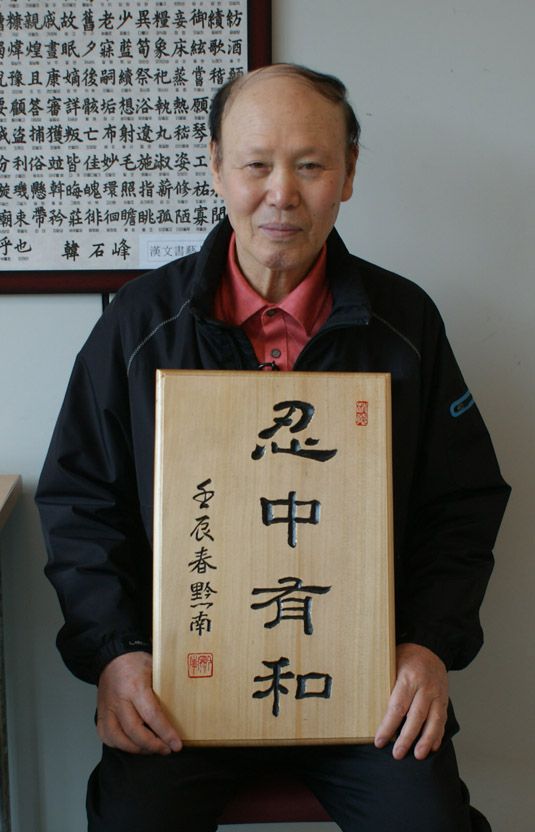 糠親戚故舊老少異糧妾御績紡
煒煌晝眠夕寐藍筍象床絃歌酒
豫且康嫡後嗣續祭祀蒸嘗稽顙
要顧答審詳骸垢想浴執熱願
盜捕獲叛亡布射遼丸嵇琴
利俗竝皆佳妙毛施淑姿工
璇璣懸斡晦魄環照指薪修祐
廟束帶矜莊徘徊瞻眺孤陋寡聞
乎也 韓石峰 漢文書藝
忍中有和
壬辰春黔南